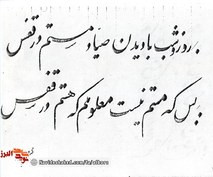 روز و شب با دیدن صیاد مستم در قفس
بس که مستم نیست معلومم که هستم در قفس
navideshahed.com/fa/alborz